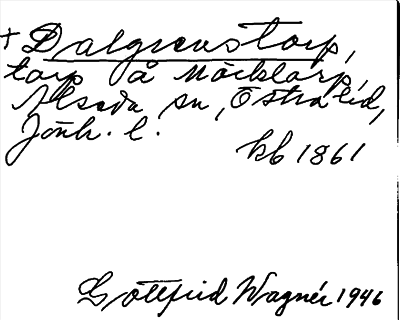 + Dalgrenstorp,
torp å Möcklarp,
Alseda sn, Östra hd,
Jönk. l.
kb 1861
Gottfrid Wagnér 1946